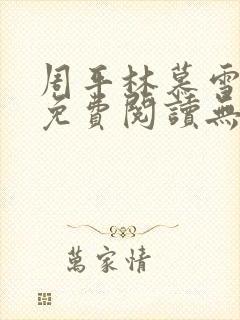 周平林慕雪
免費閱讀無
萬家情